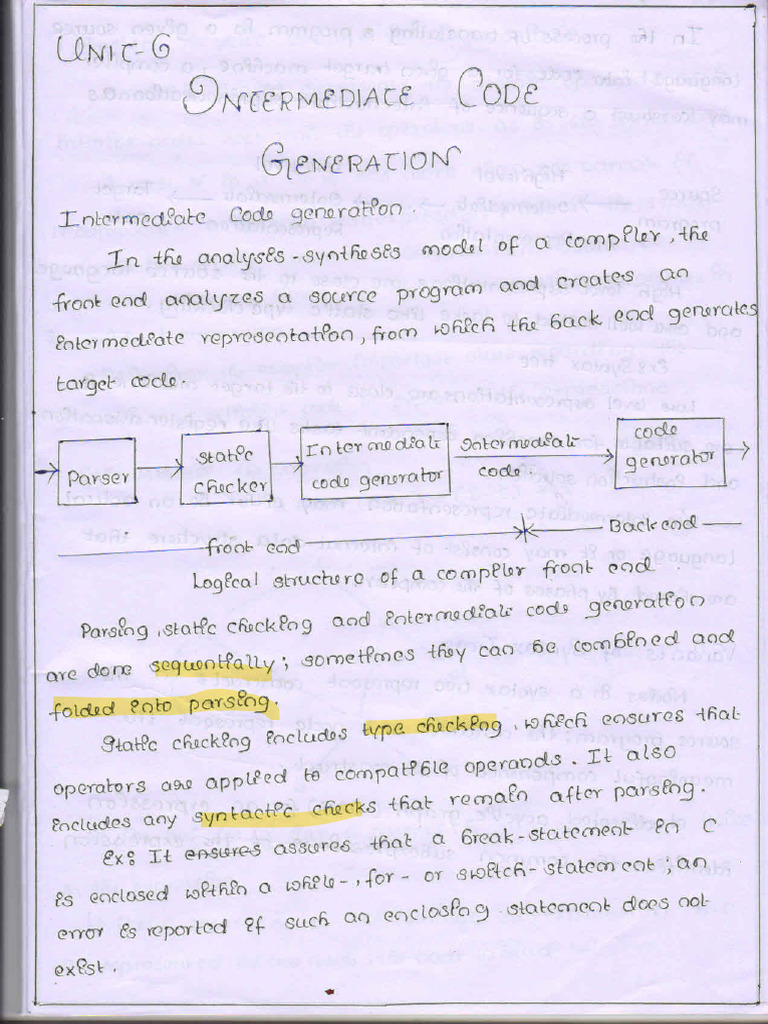 UNIT-6
INTERMEDIATE CODE
GENERATION
Intermediate code generation.
In the analysis-synthesis model of a compiler, the
front end analyzes a source program and creates an
intermediate representation, from which the back end generates
target code.
Parser
static
checker
Intermediate
code generator
Intermediate
code
code
generator
front end
Back end
Logical structure of a compiler front end.
Parsing, static checking and intermediate code generation
are done sequentially; sometimes they can be combined and
folded into parsing.
Static checking includes type checking, which ensures that
operators are applied to compatible operands. It also
includes any syntactic checks that remain after parsing.
Ex: It ensures assures that a break-statement in C
is enclosed within a while-, for- or switch-statement; an
error is reported if such an enclosing statement does not
exist.